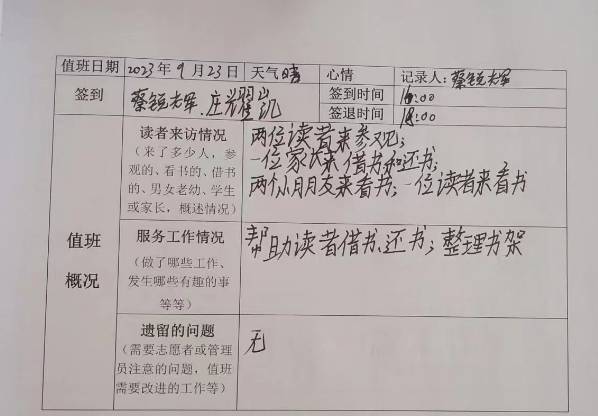 值班日期 2023年9月23日 天气 晴 心情 记录人:蔡锐光军
签到 蔡锐光军、庄耀凯 签到时间 16:00
签退时间 18:00
值班概况
读者来访情况
(来了多少人,参
观的、看书的、借书
的、男女老幼、学生
或家长,概述情况)
两位读者来参观;
一位家长来借书和还书;
两个小朋友来看书;一位读者来看书
服务工作情况
(做了哪些工作、
发生哪些有趣的事
等等)
帮助读者借书、还书;整理书架
遗留的问题
(需要志愿者或管理
员注意的问题,值班
需要改进的工作等)
无